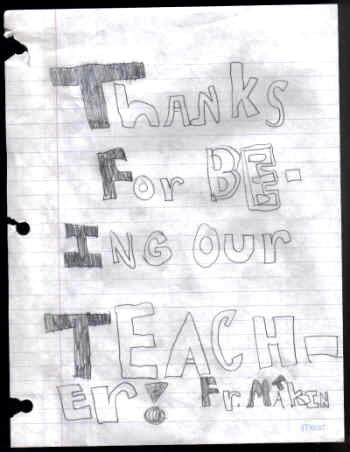 Thanks
For BE-
ING Our
TEACH-
er! Fr. Makin